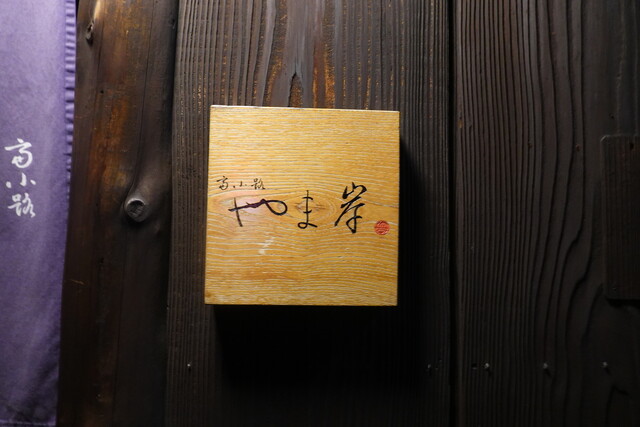 高小路
高小路
やま岸